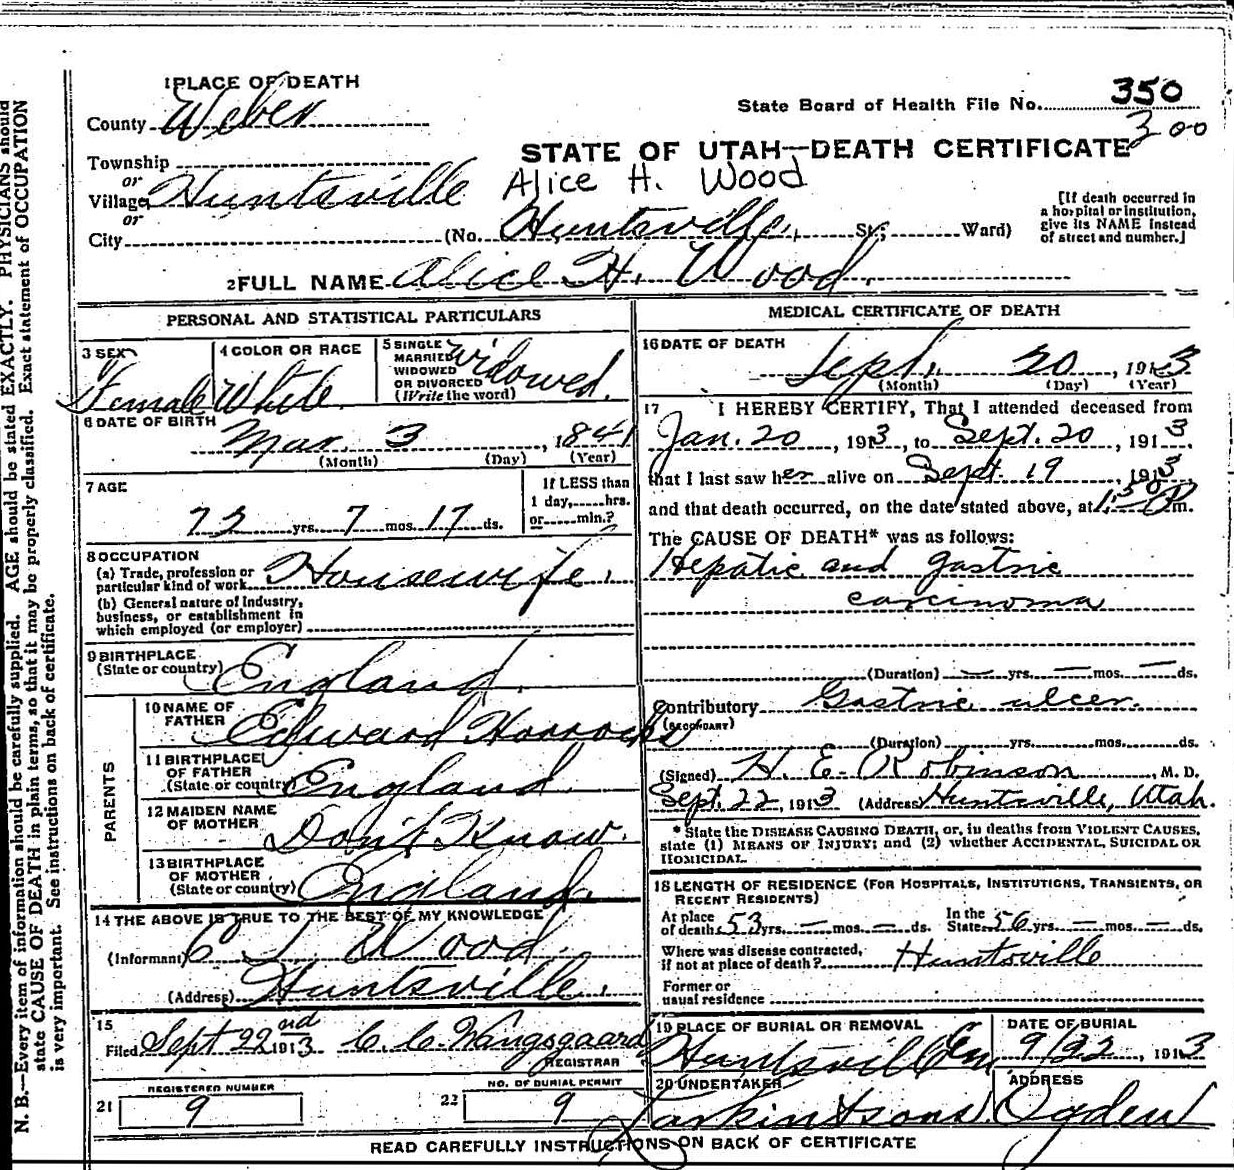 1 PLACE OF DEATH
State Board of Health File No. 350
County Weber
300
STATE OF UTAH—DEATH CERTIFICATE
Township
or
Village Huntsville
Alice H. Wood
or
City (No. Huntsville, St; Ward)
[If death occurred in
a hospital or institution,
give its NAME instead
of street and number.]
2 FULL NAME Alice H. Wood.
PERSONAL AND STATISTICAL PARTICULARS
3 SEX Female
4 COLOR OR RACE White
5 SINGLE
MARRIED
WIDOWED
OR DIVORCED
(Write the word)
widowed.
6 DATE OF BIRTH
Mar. 3, 1841
(Month) (Day) (Year)
7 AGE
72 yrs. 7 mos. 17 ds.
If LESS than
1 day, hrs.
or min.?
8 OCCUPATION
(a) Trade, profession or
particular kind of work Housewife.
(b) General nature of industry,
business, or establishment in
which employed (or employer)
9 BIRTHPLACE
(State or country) England.
PARENTS
10 NAME OF
FATHER Edward Horrocks
11 BIRTHPLACE
OF FATHER
(State or country) England.
12 MAIDEN NAME
OF MOTHER Don't Know.
13 BIRTHPLACE
OF MOTHER
(State or country) England.
14 THE ABOVE IS TRUE TO THE BEST OF MY KNOWLEDGE
(Informant) Wood.
(Address) Huntsville.
15
Filed Sept 22nd 1913 C. C. Wangsgaard
REGISTRAR
REGISTERED NUMBER
21 9
NO. OF BURIAL PERMIT
22 9
MEDICAL CERTIFICATE OF DEATH
16 DATE OF DEATH
Sept. 20, 1913
(Month) (Day) (Year)
17 I HEREBY CERTIFY, That I attended deceased from
Jan. 20, 1913, to Sept. 20, 1913.
that I last saw her alive on Sept. 19 1913
and that death occurred, on the date stated above, at 1:30 P m.
The CAUSE OF DEATH* was as follows:
Hepatic and gastric
carcinoma
(Duration) — yrs. — mos. — ds.
Contributory Gastric ulcer.
(SECONDARY)
(Duration) yrs. mos. ds.
(Signed) H. E. Robinson, M. D.
Sept. 22, 1913 (Address) Huntsville, Utah.
* State the DISEASE CAUSING DEATH, or, in deaths from VIOLENT CAUSES,
state (1) MEANS OF INJURY; and (2) whether ACCIDENTAL, SUICIDAL OR
HOMICIDAL.
18 LENGTH OF RESIDENCE (FOR HOSPITALS, INSTITUTIONS, TRANSIENTS, OR
RECENT RESIDENTS)
At place
of death 53 yrs. — mos. — ds.
In the
State 56 yrs. — mos — ds.
Where was disease contracted,
if not at place of death? Huntsville
Former or
usual residence
19 PLACE OF BURIAL OR REMOVAL
Huntsville
DATE OF BURIAL
9/22, 1913
20 UNDERTAKER
Larkin & Sons.
ADDRESS
Ogden
READ CAREFULLY INSTRUCTIONS ON BACK OF CERTIFICATE
N. B.—Every item of information should be carefully supplied. AGE should be stated EXACTLY. PHYSICIANS should
state CAUSE OF DEATH in plain terms, so that it may be properly classified. Exact statement of OCCUPATION
is very important. See instructions on back of certificate.